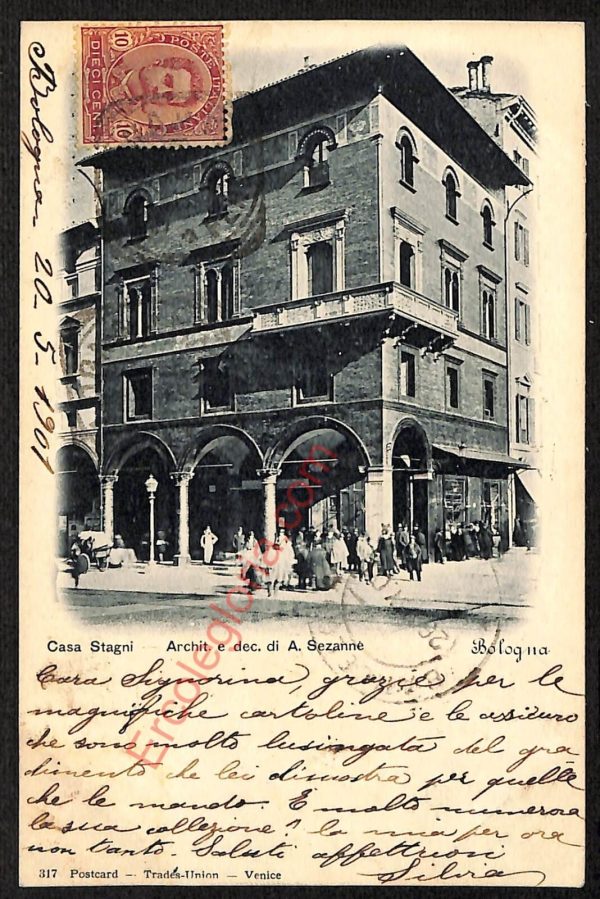 DIECI CENT.
10
POSTE ITALIANE
10
Bologna 20-5-1901
Casa Stagni Archit. e dec. di A. Sezanne Bologna
Ermolegloria.com
Cara Signorina, grazie per le
magnifiche cartoline e le assicuro
che sono molto lusingata del gra
dimento che lei dimostra per quelle
che le mando. È molto numerosa
la sua collezione? la mia per ora
non tanto. Saluti affettuosi
Silvia
317 Postcard — Tradés-Union — Venice